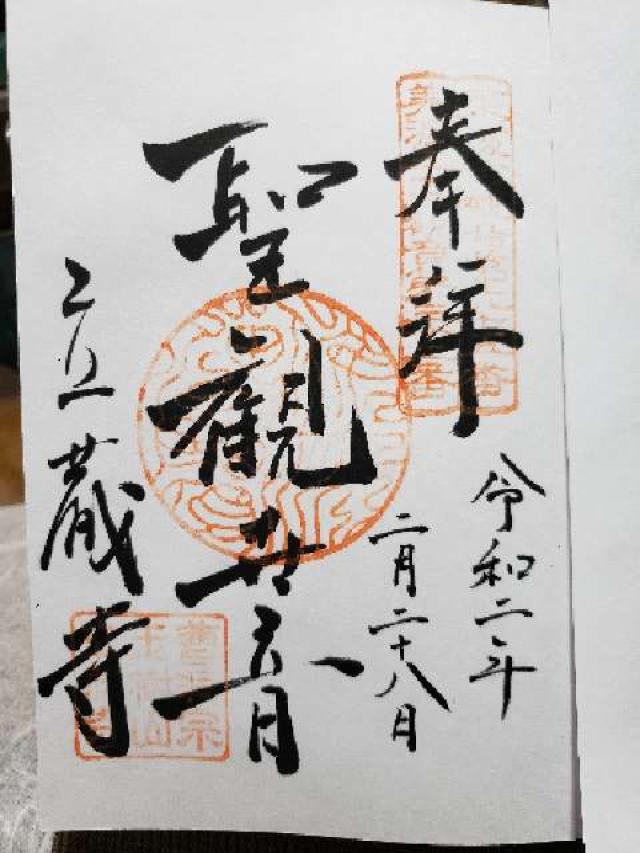 奉拝
令和二年
二月二十八日
聖觀世音
蔵寺
曹洞宗